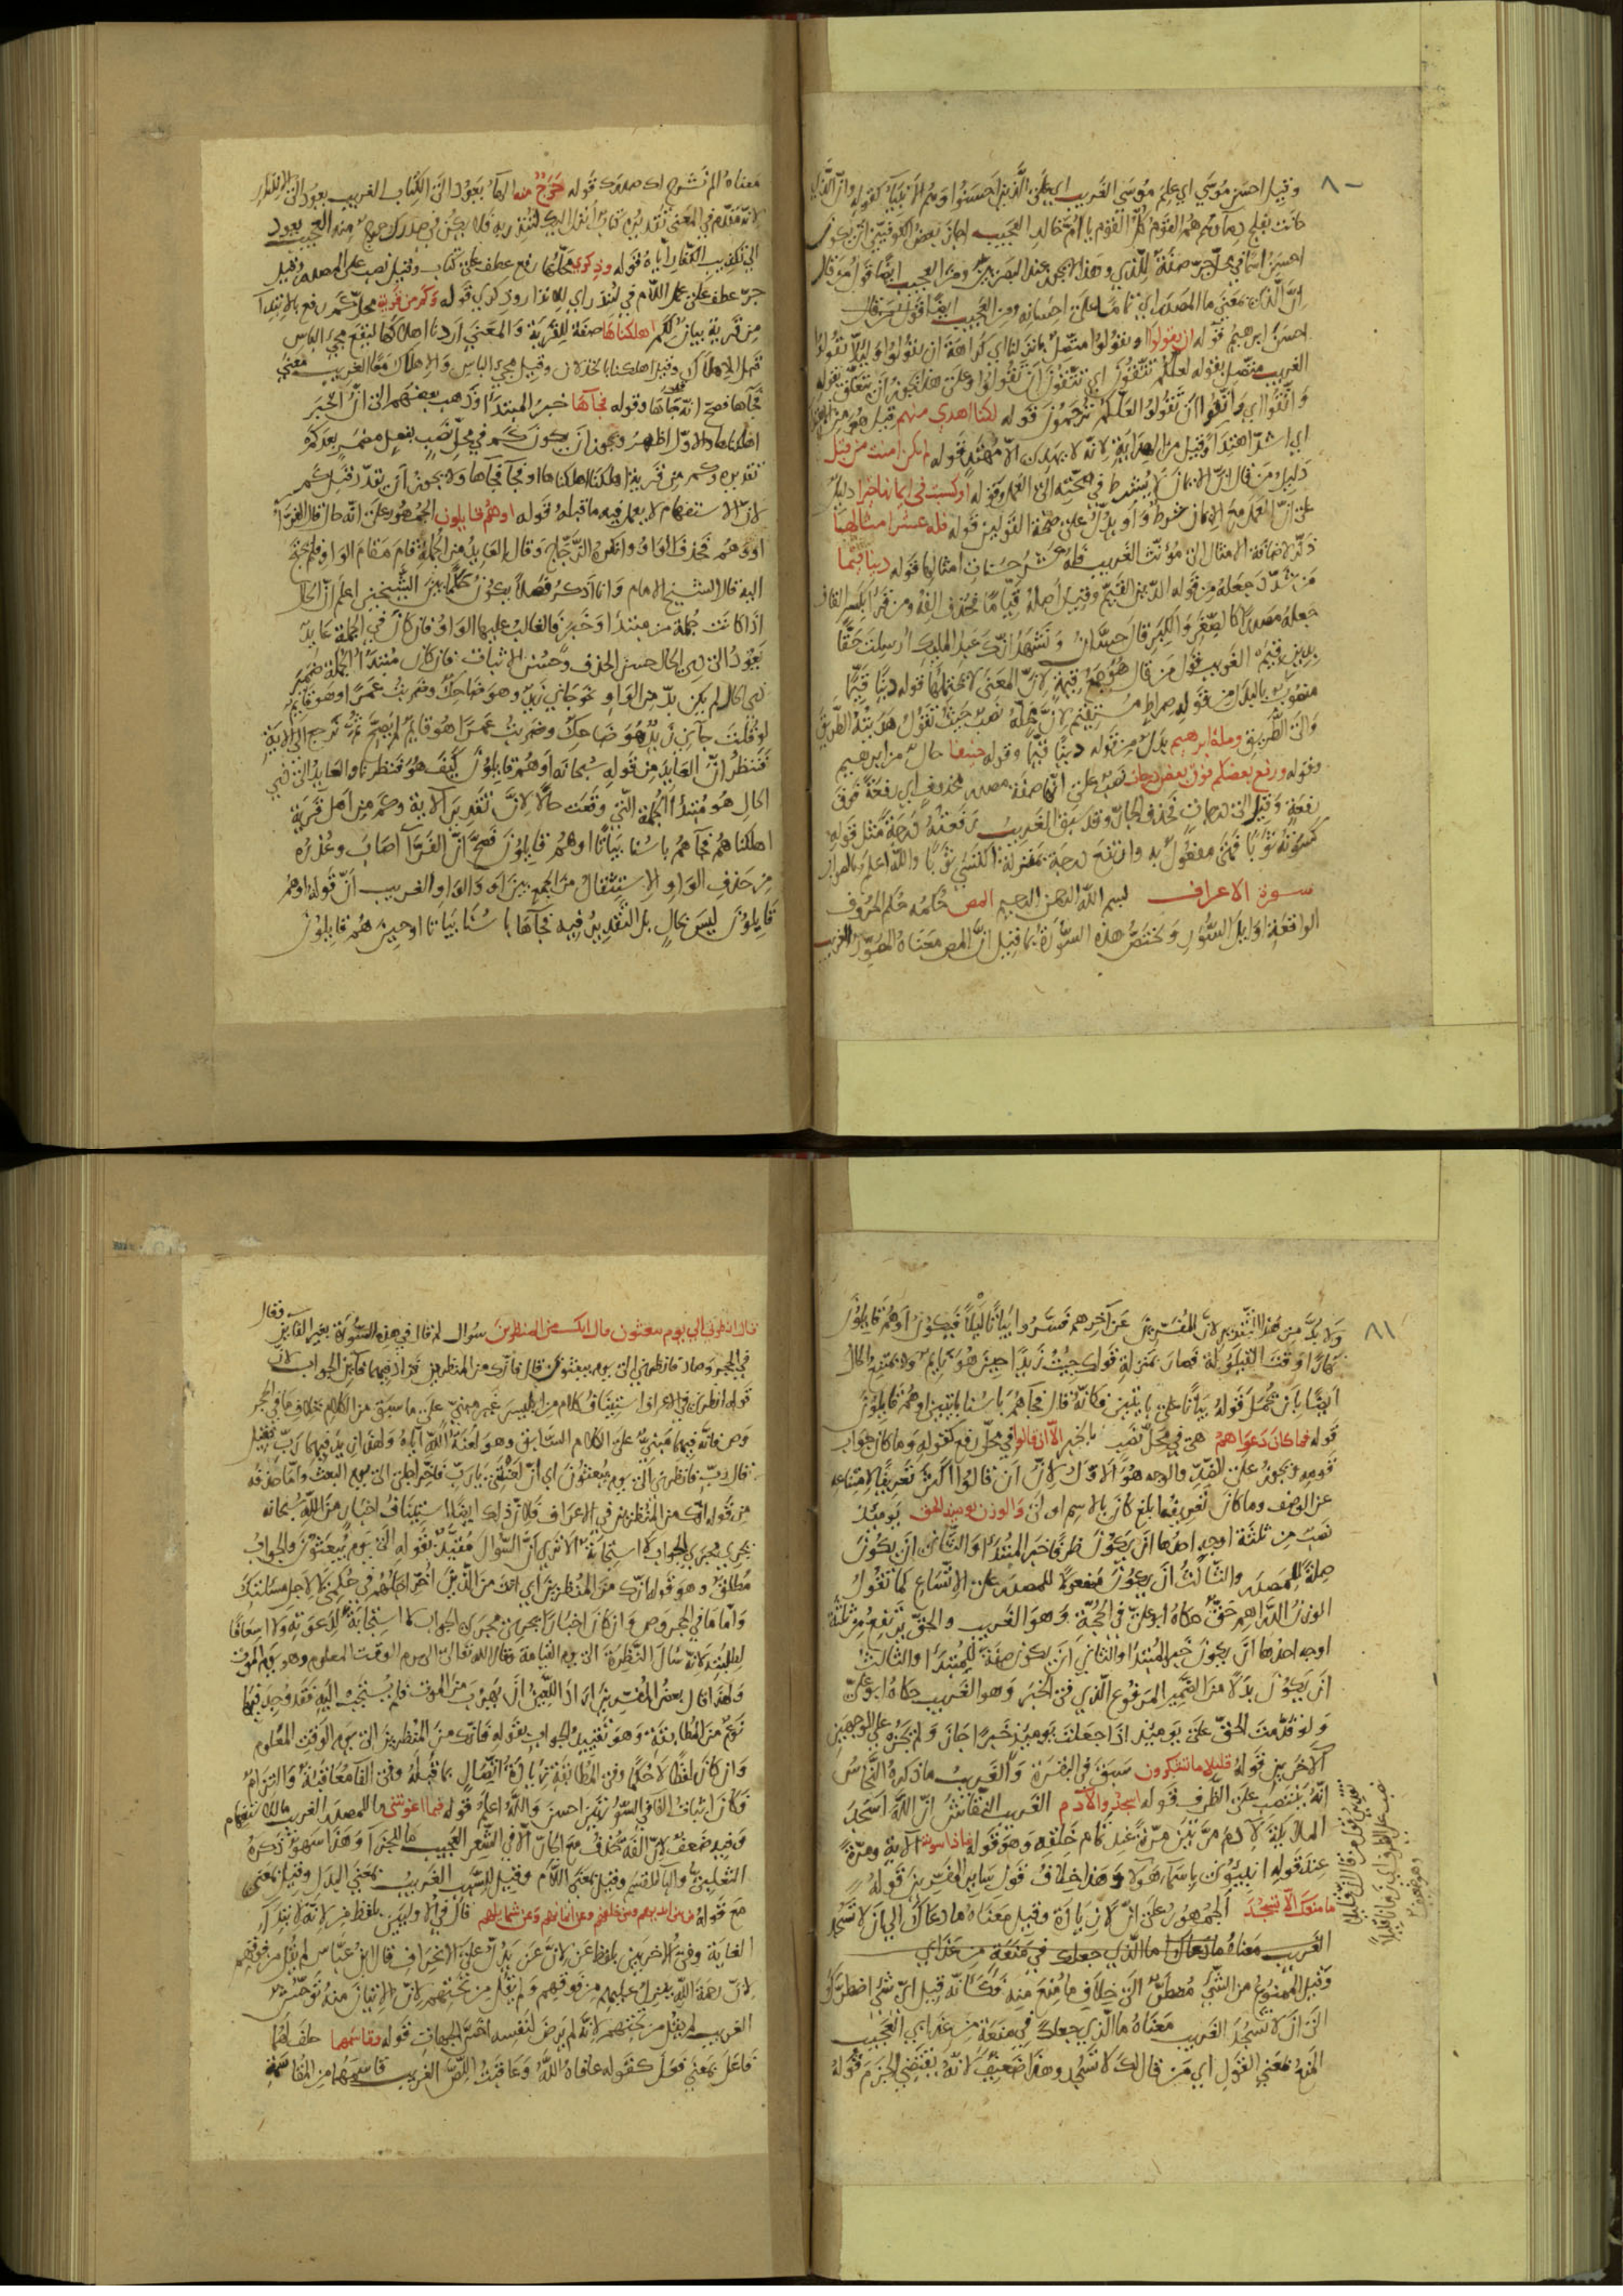 ٨٠
وقيل احسن موسي اي علم موسي الغريب اي علي الذين احسنوا وهم الانبياء كقوله وان الذي
حانت بفلج دماؤهم هم القوم كل القوم يا ام خالد العجيب اجاز بعض الكوفيين ان يكون
احسن اسما في محل جر صفة للذي وهذا لا يجوز عند البصريين ومن العجيب ايضا قول من قال
ان الذي بمعني ما المصدر اي تماما علي احسانه ومن العجيب ايضا قول من قال
احسن ابرهيم قوله ان يقولوا او يقولوا متصل بانزلنا اي كراهة ان يقولوا وليلا يقولوا
الغريب متصل بقوله لعلكم تتقون اي تتقون ان تقولوا وعلي هذا يجوز ان يتعلق بقوله
واتقوا اي واتقوا ان تقولوا لعلكم ترحمون قوله لكنا اهدي منهم قيل هو من
اي اشد اهتداء وقيل من الهداية لانه لا يهدي الا مهتد قوله لم تكن امنت من قبل
دليل من قال ان الايمان لا يشترط في صحته الي العمل وقوله او كسبت في ايمانها خيرا دليل
علي ان العمل مع الايمان شرط واو يدل علي صحة القولين قوله فله عشر امثالها
ذكر لاضافة الامثال الي مؤنث الغريب فله عشر حسنات امثالها قوله دينا قيما
من شدد جعله من قوله الدين القيم وقيل اصله قياما فحذف الفه ومن قرا بكسر القاف
جعله مصدرا كالصغر والكبر قال حسان ونشهد انك عبد المليك ارسلت حقا
بدين قيم الغريب قول من قال هو جمع قيمة لان المعني لا يحتملها قوله دينا قيما
منصوب بالبدل من قوله صراط مستقيم لان محله نصب حيث تقول هديته الطريق
والي الطريق وملة ابرهيم بدل من قوله دينا قيما وقوله حنيفا حال من ابرهيم
وقوله ورفع بعضكم فوق بعض درجات نصب علي انها صفة مصدر محذوف اي رفعة فوق
رفعة وقيل الي درجات فحذف الجار وقد سبق الغريب رفعته درجة مثل قوله
كسوته ثوبا فهي مفعول به وارتفع درجة بمنزلة اكتسي ثوبا والله اعلم بالصواب
سورة الاعراف بسم الله الرحمن الرحيم المص حكمه حكم الحروف
الواقعة اوايل السور ويختص هذه السورة بما قيل ان المص معناه المصور الغريب
معناه الم نشرح لك صدرك قوله حرج منه الهاء يعود الي الكتاب الغريب يعود الي الانذار
لانه مقدم في المعني تقديره كتاب انزل اليك لتنذر به فلا يكن في صدرك حرج منه العجيب يعود
الي تكذيب الكفار اياه قوله وذكري محلها رفع عطف علي كتاب وقيل نصب علي المصدر وقيل
جر عطف علي محل اللام في لتنذر اي للانذار وذكري قوله وكم من قرية محل كم رفع بالابتداء
من قرية بيان لكم اهلكناها صفة للقرية والمعني اردنا اهلاكها ليقع مجي الباس
قبل الاهلاك وقيل اهلكنا بالخذلان وقيل مجي الباس والاهلاك معا الغريب معني
فجاها فصح انه جاها وقوله فجاها خبر المبتدا وذهب بعضهم الي ان الخبر
اهلكناها والاول اظهر ويجوز ان يكون كم في محل نصب بفعل مضمر بعد كم
تقديره وكم من قرية اهلكنا اهلكناها او فجآ فجآها ولا يجوز ان يقدر قبل كم
لان الاستفهام لا يعمل فيه ما قبله قوله او هم قايلون الجمهور علي انه حال قال الفراء
او وهم فحذف الواو وانكره الزجاج وقال العايد من الجملة قام مقام الواو فلم يحتج
اليه قال الشيخ الامام وانا اذكر فصلا يكون حكما بين الشيخين اعلم ان الحال
اذا كانت جملة من مبتدا وخبر فالغالب عليها الواو فان كان في الجملة عايد
يعود الي ذي الحال حسن الحذف وحسن الاثبات فان كان مبتدا الجملة ضمير
ذي الحال لم يكن بد من الواو نحو جاني زيد وهو ضاحك وضربت عمرا وهو قايم
لو قلت جاني زيد هو ضاحك وضربت عمرا هو قايم لم يصح ثم نرجع الي الاية
فننظر ان العايد من قوله سبحانه او هم قايلون كيف هو فنظرنا والعايد الي ذي
الحال هو مبتدا الجملة التي وقعت حالا لان تقدير الاية وكم من اهل قرية
اهلكناهم فجآهم باسنا بياتا او هم قايلون فصح ان الفراء اصاب وعذره
من حذف الواو الاستثقال من الجمع بين او والواو الغريب ان قوله او هم
قايلون ليس بحال بل التقدير فيه فجآها باسنا بياتا او حين هم قايلون
٨١
ولا بد من هذا التقدير لان المفسرين عن آخرهم فسروا بياتا ليلا فيكون او هم قايلون
نهارا وقت القيلولة فصار بمنزلة قولك جيت زيدا حين هو نايم ولا يمتنع الحال
ايضا بان تحمل قوله بياتا علي بايتين فكانه قال فجآهم باسنا بايتين او هم قايلون
قوله فما كان دعواهم هي في محل نصب بالخبر الا ان قالوا في محل رفع كقوله وما كان جواب
قومه ويجوز علي الضد والوجه هو الاول لان ان قالوا اكثر تعريفا لامتناعه
عن الوصف وما كان تعريفه ابلغ كان بالاسم اولي والوزن يوميذ الحق يوميذ
نصب من ثلثة اوجه احدها ان يكون ظرفا خبر المبتدا والثاني ان يكون
صلة للمصدر والثالث ان يكون مفعولا للمصدر علي الاتساع كما تقول
الوزن الدراهم حق حكاه ابو علي في الحجة وهو الغريب والحق يرتفع من ثلثة
اوجه احدها ان يكون خبر المبتدا والثاني ان يكون صفة للمبتدا والثالث
ان يكون بدلا من الضمير المرفوع الذي في الخبر وهو الغريب حكاه ابو علي
ولو قدمت الحق علي يوميذ اذا جعلت يوميذ خبرا جاز ولم يجز علي الوجهين
الاخرين قوله قليلا ما تتذكرون سبق في البقرة والغريب ما ذكره النحاس
انه ينتصب علي الظرف قوله اسجدوا لادم الغريب النقاش ان الله اسجد
الملايكة لادم مرتين مرة عند تمام خلقه وهو قوله فاذا سويته الاية ومرة
عند قوله انبيوني باسماء هؤلاء وهذا خلاف قول ساير المفسرين قوله
ما منعك الا تسجد الجمهور علي ان لا زيادة وقيل معناه ما دعاك الي ان لا تسجد
الغريب معناه ما دعاك ما الذي جعلك في منعة من عذابي
وقيل الممنوع من الشي مضطر الي خلاف ما منع منه فكانه قيل اي شي اضطرك
الي ان لا تسجد الغريب معناه ما الذي جعلك في منعة من عذابي العجيب
المنع بمعني القول اي من قال لك لا تسجد وهذا ضعيف لانه يقتضي الجزم قوله
قال انظرني الي يوم يبعثون قال انك من المنظرين سؤال لم قال في هذه السورة بغير الفايين وقال
في الحجر وصاد فانظرني الي يوم يبعثون قال فانك من المنظرين فزاد فيهما فآين الجواب لان
قوله انظرني في الاعراف استيناف كلام من ابليس غير مبني علي ما سبق من الكلام بخلاف ما في الحجر
وص فانه فيهما مبني علي الكلام السابق وهو لعنة الله اياه ولهذا زيد فيهما رب فقيل
قال رب فانظرني الي يوم يبعثون اي ان لعنتني يا رب فاخر اجلي الي يوم البعث واما حذفه
من قوله انك من المنظرين في الاعراف فلان ذلك ايضا استيناف اخبار من الله سبحانه
يجري مجري الجواب لا استجابة الا تري ان السؤال مقيد بقوله الي يوم يبعثون والجواب
مطلق وهو قوله انك من المنظرين اي انك من الذين اخر اجالهم في حكمي لا لاجل مسئلتك
واما ما في الحجر وص وان كان اخبارا يجري مجري الجواب لا استجابة لدعوته ولا اسعافا
لطلبته لانه سأل النظرة الي يوم القيامة وقال الله تعالي الي يوم الوقت المعلوم وهو يوم الموت
ولهذا قال بعض المفسرين اراد اللعين ان يهرب من الموت فلم يستجب اليه فقد وجد فيهما
نوع من المطابقة وهو تقييد الجواب بقوله فانك من المنظرين الي يوم الوقت المعلوم
وان كان لفظا لا حكما وفي المطابقة زيادة اتصال بما قبله وفي الفا معاقبة والتزام
فكان اثبات الفا في السورتين احسن والله اعلم قوله فبما اغويتني ما للمصدر الغريب ما للاستفهام
وفيه ضعف لان الفه تحذف مع الجار الا في الشعر العجيب ما للجزا وهذا سهو ذكره
الثعلبي والبا للقسم وقيل بمعني اللام وقيل للسبب الغريب بمعني البدل وقيل بمعني
مع قوله من بين ايديهم ومن خلفهم وعن ايمانهم وعن شمايلهم قال في الاوليين بلفظ من لانه لابتداء
الغاية وفي الاخريين بلفظ عن لان عن يدل علي الانحراف قال ابن عباس لم يقل من فوقهم
لان رحمة الله ينزل عليهم من فوقهم ولم يقل من تحتهم لان الاتيان منه توحش
الغريب لم يقل من تحتهم لانه لم يرض لنفسه اخس الجهات قوله وقاسمهما حلف لهما
فاعل بمعني فعل كقوله عافاه الله وعاقبت اللص الغريب قاسمهما من المقاسمة